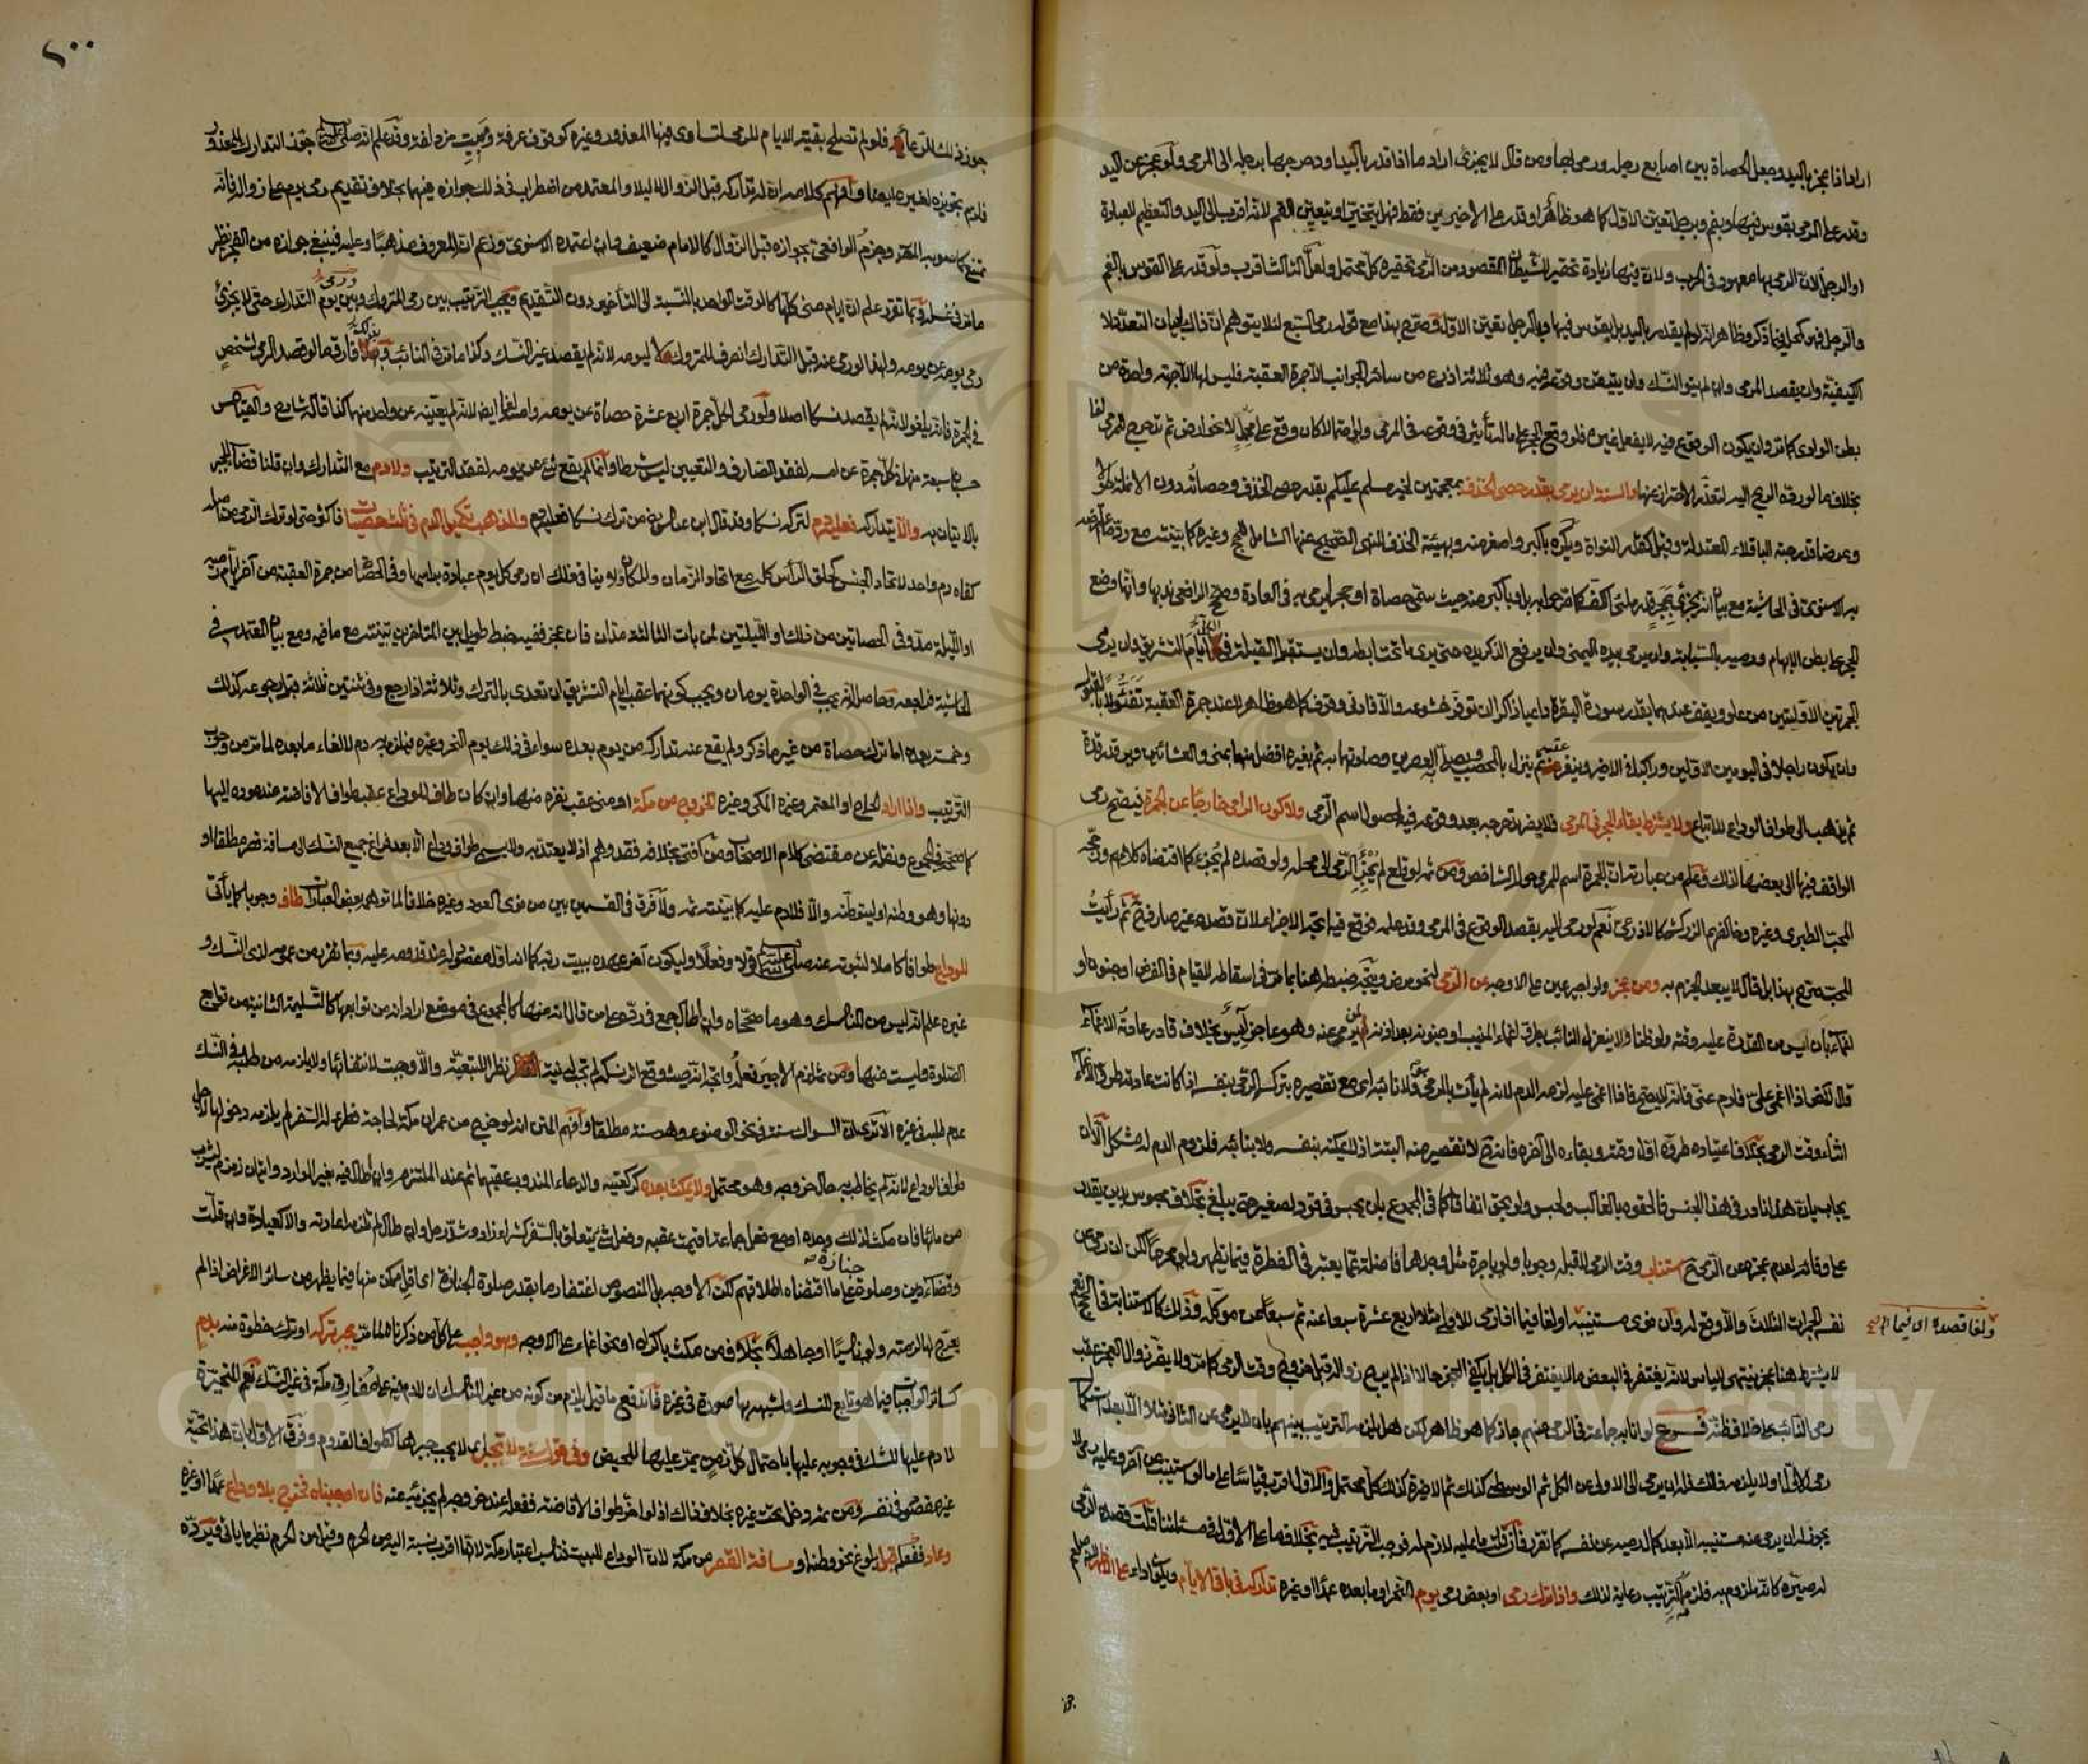 اراد اذا عجز باليد وجعل الحصاة بين اصابع رجله ورمى بها ومن قال لا يجزئ اراد ما اذا قدر باليد او دحرجها برجله الى المرمى ولو عجز عن اليد
وقدر على الرمى بقوس فيها وبفم وبرجل تعين الاول كما هو ظاهر او قدر على الاخيرين فقط فهل يتخير او يتعين الفم لانه اقرب الى اليد والتعظيم للعبادة
او الرجل لان الرمى بها معهود فى الحرب ولان فيها زيادة تحقير للشيطان المقصود من الرمى تحقيره كل محتمل ولعل الثالث اقرب ولو قدر على القوس بالفم
والرجل فهو كمحل فيما ذكر وظاهر انه لو لم يقدر باليد بل بقوس فيها وبالرجل تعين الاول وصرح بهذا مع قوله رمى السبع لئلا يتوهم ان ذاك لبيان التعدد لا
الكيفية وان يقصد المرمى وان لم ينو النسك وان يتيقن وقوعه فيه وهو ثلاثة اذرع من سائر الجوانب الا جمرة العقبة فليس لها الا جهة واحدة من
بطن الوادى كما مر وان يكون الوقوع فيه لا بفعل غيره فلو وقع الحجر على ما له تأثير فى وقوعه فى المرمى ولو احتمالا كأن وقع على محمل لا نحو ارض ثم تدحرج للمرمى لغا
بخلاف ما لو رده الريح اليه لتعذر الاحتراز عنها والسنة ان يرمى بقدر حصى الخذف بمعجمتين لخبر مسلم عليكم بقدر حصى الخذف وحصاته دون الانملة طولا
وعرضا قدر حبة الباقلاء المعتدلة وقيل كقدر النواة ويكره باكبر واصغر منه وبهيئة الخذف للنهى الصحيح عنها الشامل للحج وغيره كما بينته مع رد ما اعترض
به الاسنوى فى الحاشية مع بيان انه يجزئ بحجر قدر ملئ الكف كما صرحوا به بل وباكبر منه حيث سمى حصاة او حجرا يرمى به فى العادة وصحح الرافعى ندبها وانها وضع
الحجر على بطن الابهام ورميه بالسبابة وان يرمى بيده اليمنى وان يرفع الذكر يده حتى يرى ما تحت ابطه وان يستقبل القبلة فى ايام التشريق وان يرمى
الجمرتين الاوليتين من علو ويقف عندهما بقدر سورة البقرة داعيا ذاكرا ان توفر خشوعه والا فادنى وقوف كما هو ظاهر لا عند جمرة العقبة تفاؤلا بالقبول
وان يكون راجلا فى اليومين الاولين وراكبا فى الاخير وينفر عقبه ثم ينزل بالمحصب ويصلى به العصرين وصلاتهما به ثم بغيره افضل منها بمنى والعشائين ويرقد رقدة
ثم يذهب الى طواف الوداع للاتباع ولا يشترط بقاء الحجر فى المرمى فلا يضر تدحرجه بعد وقوعه فيه لحصول اسم الرمى ولا كون الرامى خارجا عن الجمرة فيصح رمى
الواقف فيها الى بعضها لذلك وعلم من عبارته ان الجمرة اسم للمرمى حول الشاخص ومن ثم لو قلع لم يجز الرمى الى محله ولو قصده لم يجزئ كما اقتضاه كلامهم ورجحه
المحب الطبرى وغيره وخالفهم الزركشى كالاذرعى نعم لو رمى اليه بقصد الوقوع فى المرمى وقد علمه فوقع فيه اتجه الاجزاء لان قصده غير صارف ح ثم رأيت
المحب صرح بهذا بل قال لا يبعد الجزم به ومن عجز ولو اجير عين على الاوجه عن الرمى لنحو مرض ويتجه ضبطه هنا بما مر فى اسقاطه للقيام فى الفرض او جنون او
اغماء بان ايس من القدرة عليه وقته ولو ظنا ولا ينعزل النائب بطرو اغماء المنيب او جنونه بعد اذنه لمن يرمى عنه وهو عاجز آيس بخلاف قادر عادته الاغماء
قال لآخر اذا اغمى على فارم عنى فانه لا يصح فاذا اغمى عليه لزمه الدم لانه لم يأت بالرمى ولا نائبه اى مع تقصيره بترك الرمى بنفسه اذا كانت عادته طرو الاغماء
اثناء وقت الرمى بخلاف اعتياده طروه اول وقته وبقاءه الى آخره فانه ح لا تقصير منه البتة اذ لا يمكنه بنفسه ولا بنائبه فلزوم الدم له مشكل الا ان
يجاب بان هذا نادر فى هذا الجنس فالحقوه بالغالب ولحبس ولو بحق اتفاقا كما فى المجموع بان يحبس فى قود لصغير حتى يبلغ بخلاف محبوس بدين يقدر
على وفائه لعدم عجزه عن الرمى ح استناب وقت الرمى لا قبله وجوبا ولو باجرة مثل وجدها فاضلة عما يعتبر فى الفطرة فيما يظهر ولو محرما لكن ان رمى عن
نفسه الجمرات الثلاث والا وقع له وان نوى مستنيبه او لغا فيما اذا رمى للاولى مثلا اربع عشرة سبعا عنه ثم سبعا عن موكله وذلك كالاستنابة فى الحج نعم
ولغا قصده اى فيما اذا رمى صح
لا يشترط هنا عجز ينتهى لليأس لانه يغتفر فى البعض ما لا يغتفر فى الكل بل يكفى العجز حالا اذا لم يرج زواله قبل خروج وقت الرمى كما مر ولا يضر زوال العجز عقب
رمى النائب على خلاف ظنه فرع لو انابه جماعة فى الرمى عنهم جاز كما هو ظاهر لكن هل يلزمه الترتيب بينهم بان لا يرمى عن الثانى مثلا الا بعد استكمال
رمى الاول او لا يلزمه ذلك فله ان يرمى الى الاولى عن الكل ثم الوسطى كذلك ثم الاخيرة كذلك كل محتمل والاول اقرب قياسا على ما لو استنيب عن آخر وعليه رمى لا
يجوز له ان يرمى عنه مستنيبه الا بعد كمال رميه عن نفسه كما تقرر فان قلت ما عليه لازم له فوجب الترتيب فيه بخلافه على الاول فى مسئلتنا قلت قصده الرمى
له صيره كانه ملزوم به فلزمه الترتيب رعاية لذلك واذا ترك رمى او بعض رمى يوم النحر او ما بعده عمدا او غيره تداركه فى باقى الايام ويكون اداء على الاظهر لانه صلعم
٢٠٠
جوز ذلك للرعاة فلو لم تصلح بقية الايام للرمى لتساوى فيها المعذور وغيره كوقوف عرفة ومبيت مزدلفة وقد علم انه صلى الله عليه وسلم جوز التدارك للمعذور
فلزم تجويزه لغيره ايضا وافهم كلامه ان له تداركه قبل الزوال لا ليلا والمعتمد من اضطراب فى ذلك جوازه فيهما بخلاف تقديم رمى يوم على زواله فانه
ممتنع كما صوبه المص وجزم الرافعى بجوازه قبل الزوال كالامام ضعيف وان اعتمده الاسنوى وزعم انه المعروف مذهبا وعليه فينبغى جوازه من الفجر نظير
ما مر فى غسله وبما تقرر علم ان ايام منى كلها كالوقت الواحد بالنسبة الى التأخير دون التقديم ويجب الترتيب بين رمى المتروك ورمى يوم التدارك حتى لا يجزئ
رمى يومه عن يومه ولهذا لو رمى عنه قبل التدارك انصرف للمتروك لا ليومه لانه لم يقصد غير النسك وكذا ما مر فى النائب وبذلك فارق ما لو قصد الرمى لشخص
فى الجمرة فانه يلغو لانه لم يقصد نسكا اصلا ولو رمى الى كل جمرة اربع عشرة حصاة عن يومه وامسه لغا ايضا لانه لم يعينه عن واحد منهما كذا قاله شارح والقياس
حسبان سبعة منها فى كل جمرة عن امسه لفقد الصارف والتعيين ليس شرطا وانما لم يقع شئ عن يومه لفقد الترتيب ولا دم مع التدارك وان قلنا قضاء للجبر
بالاتيان به والا يتداركه فعليه دم لتركه نسكا وقد قال ابن عباس رض من ترك نسكا فعليه دم والمذهب تكميل الدم فى ثلاث حصيات فاكثر حتى لو ترك الرمى من اصله
كفاه دم واحد لاتحاد الجنس كحلق الرأس كله مع اتحاد الزمان والمكان ولا ينافى ذلك ان رمى كل يوم عبادة برأسها وفى الحصاة من جمرة العقبة من آخر ايام رميه
او الليلة مد وفى الحصاتين من ذلك او الليلتين لمن بات الثالثة مدان فان عجز ففيه خبط طويل بين المتأخرين بينته مع ما فيه ومع بيان المعتمد فى
الحاشية فراجعه وحاصله انه يجب فى الواحدة يومان ويجب كونهما عقب ايام التشريق ان تعدى بالترك وثلاثة اذا رجع وفى ثنتين ثلاثة قبل رجوعه كذلك
وخمسة بعده اما ترك حصاة من غير ما ذكر ولم يقع عنه تداركه من يوم بعده سواء فى ذلك يوم النحر وغيره فيلزم به دم لالغاء ما بعده لما مر من وجوب
الترتيب واذا اراد الحاج او المعتمر وغيره المكى وغيره الخروج من مكة او منى عقب نفره منها وان كان طاف للوداع عقب طواف الافاضة عند عوده اليها
كما صححه فى المجموع ونقله عن مقتضى كلام الاصحاب ومن افتى بخلافه فقد وهم اذ لا يعتد به ولا يسمى طواف وداع الا بعد فراغ جميع النسك الى مسافة قصر مطلقا او
دونها وهو وطنه او ليتوطنه والا فلا دم عليه كما بينته ثم ولا فرق فى القسمين بين من نوى العود وغيره خلافا لما توهمه بعض العبارات طاف وجوبا كما يأتى
للوداع طوافا كاملا لثبوته عنه صلى الله عليه وسلم قولا وفعلا وليكون آخر عهده ببيت ربه كما انه اول مقصود له عند قدومه عليه وبما تقرر من عمومه لذى النسك و
غيره علم انه ليس من المناسك وهو ما صححاه وان اطال جمع فى رده على من قال انه منها كالمجموع فى موضع اراد انه من توابعها كالتسليمة الثانية من توابع
الصلوة وليست منها ومن ثم لزم الاجير فعله واتجه انه حيث وقع اثر نسك لم تجب له نية نظرا للتبعية والا وجبت لانتفائها ولا يلزمه من طلبه فى النسك
عدم طلبه فى غيره الا ترى ان السواك سنة فى نحو الوضوء وهو سنة مطلقا وافهم المتن انه لو خرج من عمران مكة لحاجة فطرا له السفر لم يلزمه دخولها لاجل
طواف الوداع لانه لم يخاطب به حال خروجه وهو محتمل ولا يمكث بعده كركعتيه والدعاء المندوب عقبهما ثم عند الملتزم وان اطال فيه بغير الوارد واتيان زمزم ليشرب
من مائها فان مكث لذلك وحده او مع فعل جماعة اقيمت عقبه وفعل شئ يتعلق بالسفر كشراء زاد وشد رحل وان طال لم تلزمه اعادته والا كعيادة وان قلت
وقضاء دين وصلوة جنازة على ما اقتضاه اطلاقهم لكن الاوجه بل المنصوص اغتفار ما بقدر صلوة الجنازة اى اقل ممكن منها فيما يظهر من سائر الاغراض اذا لم
يعرج لها لزمته ولو ناسيا او جاهلا بخلاف من مكث باكراه او نحو اغماء على الاوجه وهو واجب على كل من ذكرناه لما مر يجبر تركه او ترك خطوة منه بدم
كسائر الواجبات فيما هو تابع للنسك ولشبهه بها صورة فى غيره فاندفع ما قيل يلزم من كونه من غير المناسك ان لا دم فيه على مفارق مكة فى غير النسك نعم المتحيرة
لا دم عليها للشك فى وجوبه عليها باحتمال كل زمن يمر عليها للحيض وفى قول سنة لا تجبر اى لا يجب جبرها كطواف القدوم وفرق الاول بان هذا تحية
غير مقصود فى نفسه ومن ثم دخل تحت غيره بخلاف ذاك اذ لو اخر طواف الافاضة ففعله عند خروجه لم يجزئه عنه فان اوجبناه فخرج بلا وداع عمدا او غيره
وعاد ففعله قبل بلوغ نحو وطنه او مسافة القصر من مكة لان الوداع للبيت فناسب اعتبار مكة لانها اقرب نسبة اليه من الحرم وقيل من الحرم نظير ما يأتى فى رده